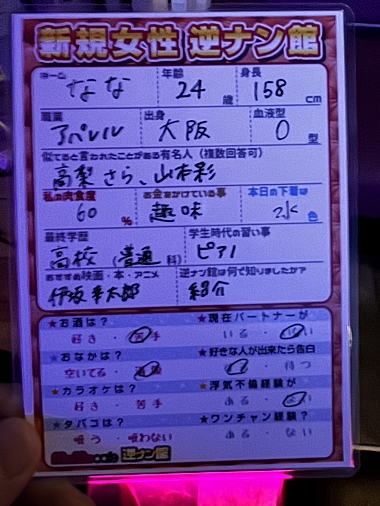 新規女性 逆ナン館
ネーム 年齢 身長
なな 24 歳 158 cm
職業 出身 血液型
アパレル 大阪 O 型
似てると言われたことがある有名人(複数回答可)
高梨さら、山本彩
私の肉食度 お金をかけている事 本日の下着は
60 % 趣味 水 色
最終学歴 学生時代の習い事
高校 (普通 科) ピアノ
おすすめ映画・本・アニメ 逆ナン館は何で知りましたか?
伊坂幸太郎 紹介
★お酒は? ★現在パートナーが
好き ・ 苦手 いる ・ いない
★おなかは? ★好きな人が出来たら告白
空いてる ・ 満腹 ・ 待つ
★カラオケは? ★浮気不倫経験が
好き ・ 苦手 ある ・ ない
★タバコは? ★ワンチャン経験?
吸う ・ 吸わない ある ・ ない
逆ナン館